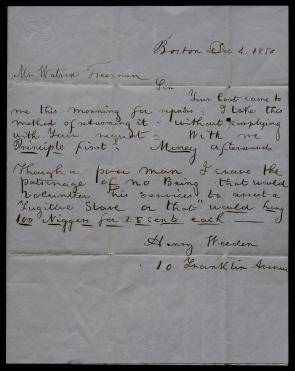 Boston Dec 4. 1850
Mr Watson Freeman
Sir
Your Coat came to
me this morning for repairs. I take this
method of returning it - without complying
with Your request - With me
Principle first - Money afterwards
Though a poor man I crave the
patronage of no Being that would
volunteer his services to arrest a
Fugitive Slave or that "would hang
100 Niggers for 25 Cents each"
Henry Weeden
10 Franklin Avenue